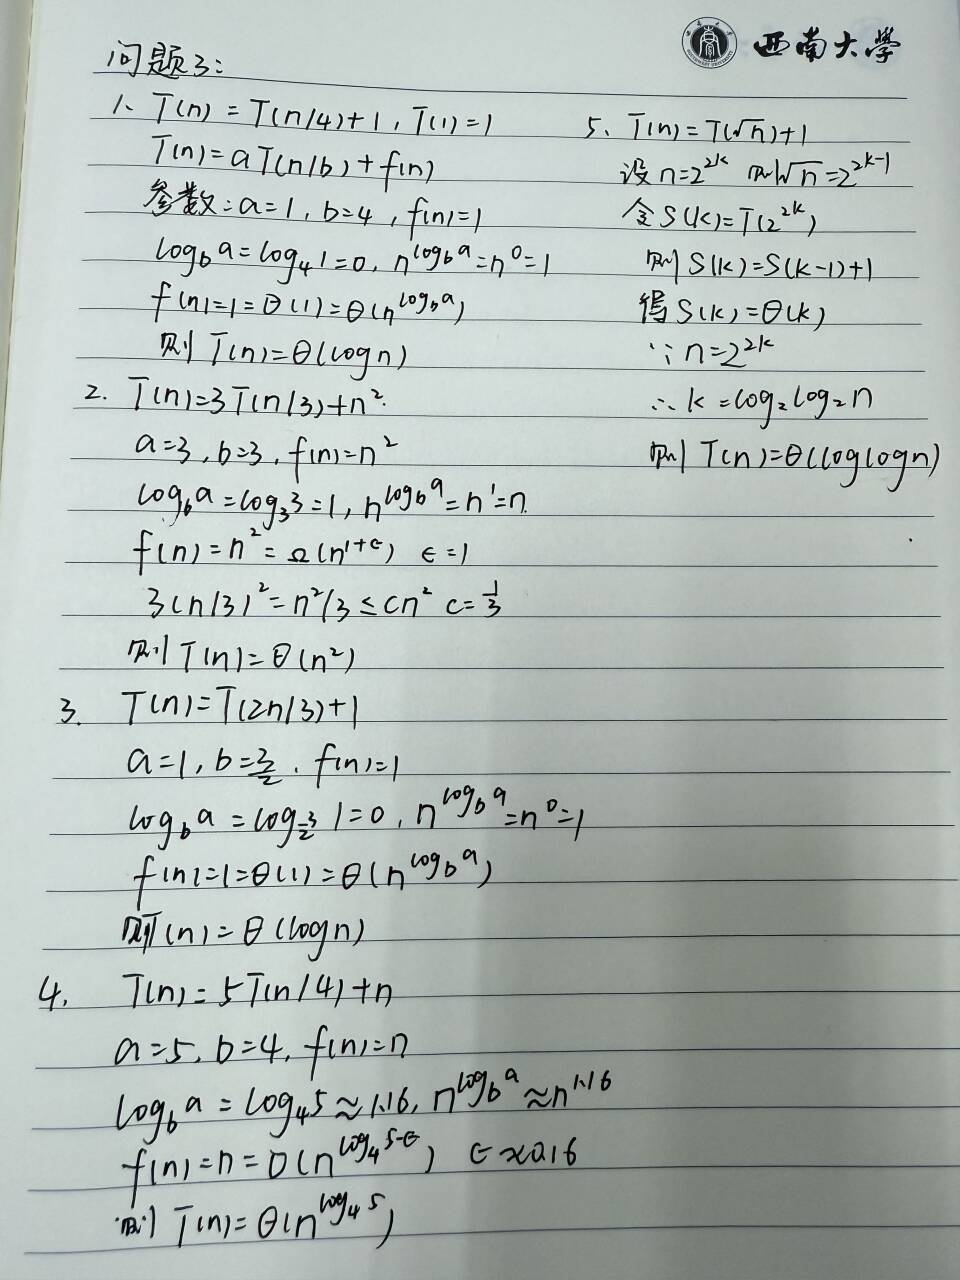 西南大學
问题3:
1、T(n) = T(n/4)+1, T(1)=1
T(n)=aT(n/b)+f(n)
参数:a=1, b=4, f(n)=1
log_b a=log_4 1=0, n^{log_b a}=n^0=1
f(n)=1=θ(1)=θ(n^{log_b a})
则 T(n)=θ(logn)
2. T(n)=3T(n/3)+n^2.
a=3, b=3, f(n)=n^2
log_b a=log_3 3=1, n^{log_b a}=n^1=n.
f(n)=n^2=Ω(n^{1+ϵ}) ϵ=1
3(n/3)^2=n^2/3≤cn^2 c=1/3
则 T(n)=θ(n^2)
3. T(n)=T(2n/3)+1
a=1, b=3/2, f(n)=1
log_b a=log_{3/2} 1=0, n^{log_b a}=n^0=1
f(n)=1=θ(1)=θ(n^{log_b a})
则T(n)=θ(logn)
4. T(n)=5T(n/4)+n
a=5, b=4, f(n)=n
log_b a=log_4 5≈1.16, n^{log_b a}≈n^{1.16}
f(n)=n=O(n^{log_4 5-ϵ}) ϵ≈0.16
则 T(n)=θ(n^{log_4 5})
5、T(n)=T(√n)+1
设n=2^{2^k} 则√n=2^{2^{k-1}}
令S(k)=T(2^{2^k})
则S(k)=S(k-1)+1
得S(k)=θ(k)
∵n=2^{2^k}
∴k=log_2 log_2 n
则 T(n)=θ(loglogn)